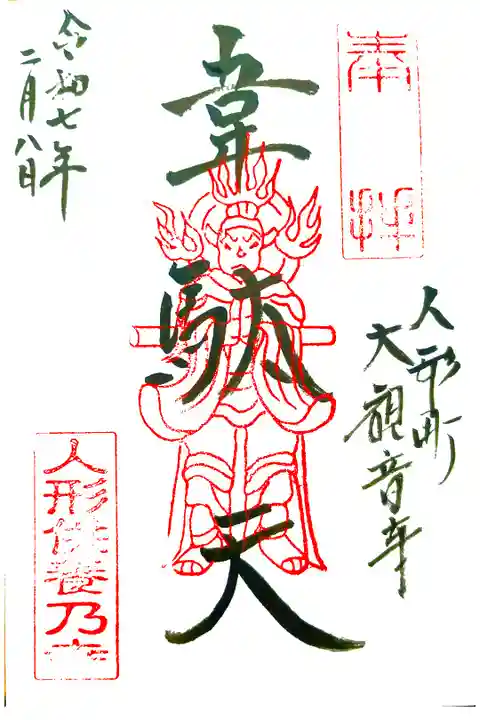 奉拝
人形町
大観音寺
韋駄天
令和七年
二月八日
人形供養乃寺